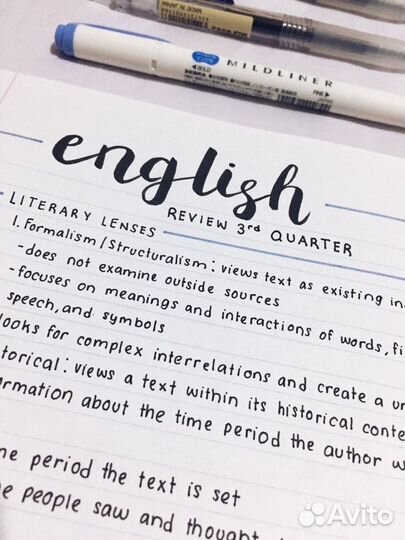 MILDLINER
BOLD
FINE
english
REVIEW 3rd QUARTER
LITERARY LENSES
1. Formalism/Structuralism: views text as existing
-does not examine outside sources
-focuses on meanings and interactions of words,
speech, and symbols
looks for complex interrelations and create a
views a text within its historical
about the time period the author
period the text is set
people saw and thought
Avito